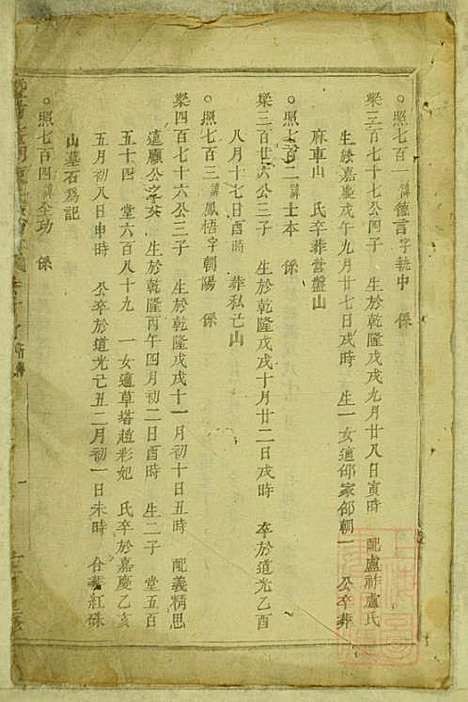 照七百一 諱德言字執中 係
梁三百七十七公四子 生於乾隆戊戌九月廿八日寅時 配盧祚盧氏
生於嘉慶戊午九月廿七日戌時 生一女適邵家邵朝一 公卒葬
麻車山 氏卒葬营盤山
照七百二 諱士本 係
梁三百廿六公三子 生於乾隆戊戌十月廿二日戌時 卒於道光乙酉
八月十七日酉時 葬私亡山
照七百三 諱鳳梧字朝陽 係
梁四百七十六公三子 生於乾隆戊戌十一月初十日丑時 配義精思
遠廳公之女 生於乾隆丙午四月初二日酉時 生二子 堂五百
五十四 堂六百八十九 一女適草塔趙彩妃 氏卒於嘉慶乙亥
五月初八日申時 公卒於道光己丑二月初一日未時 合葬紅硃
山墓石為記
照七百四 諱全功 係